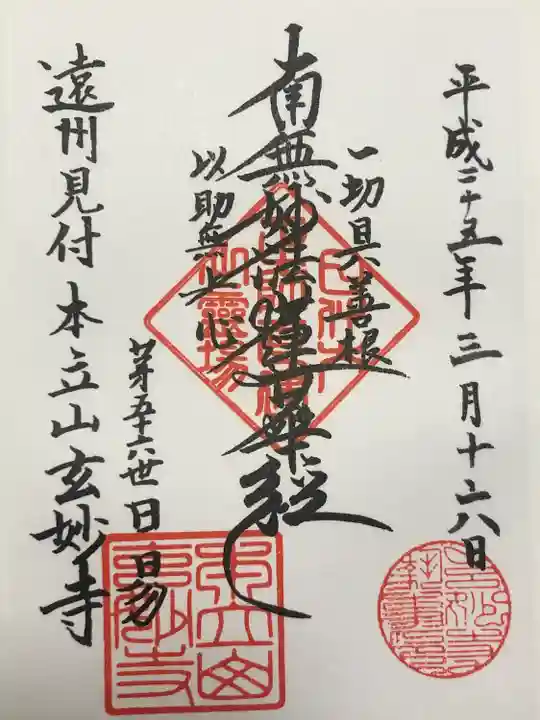 平成二十五年三月十六八日
一切具善根
南無妙法蓮華経
以助無上心
第五十六世日昜
遠州見付 本立山玄妙寺
本立山
玄妙寺